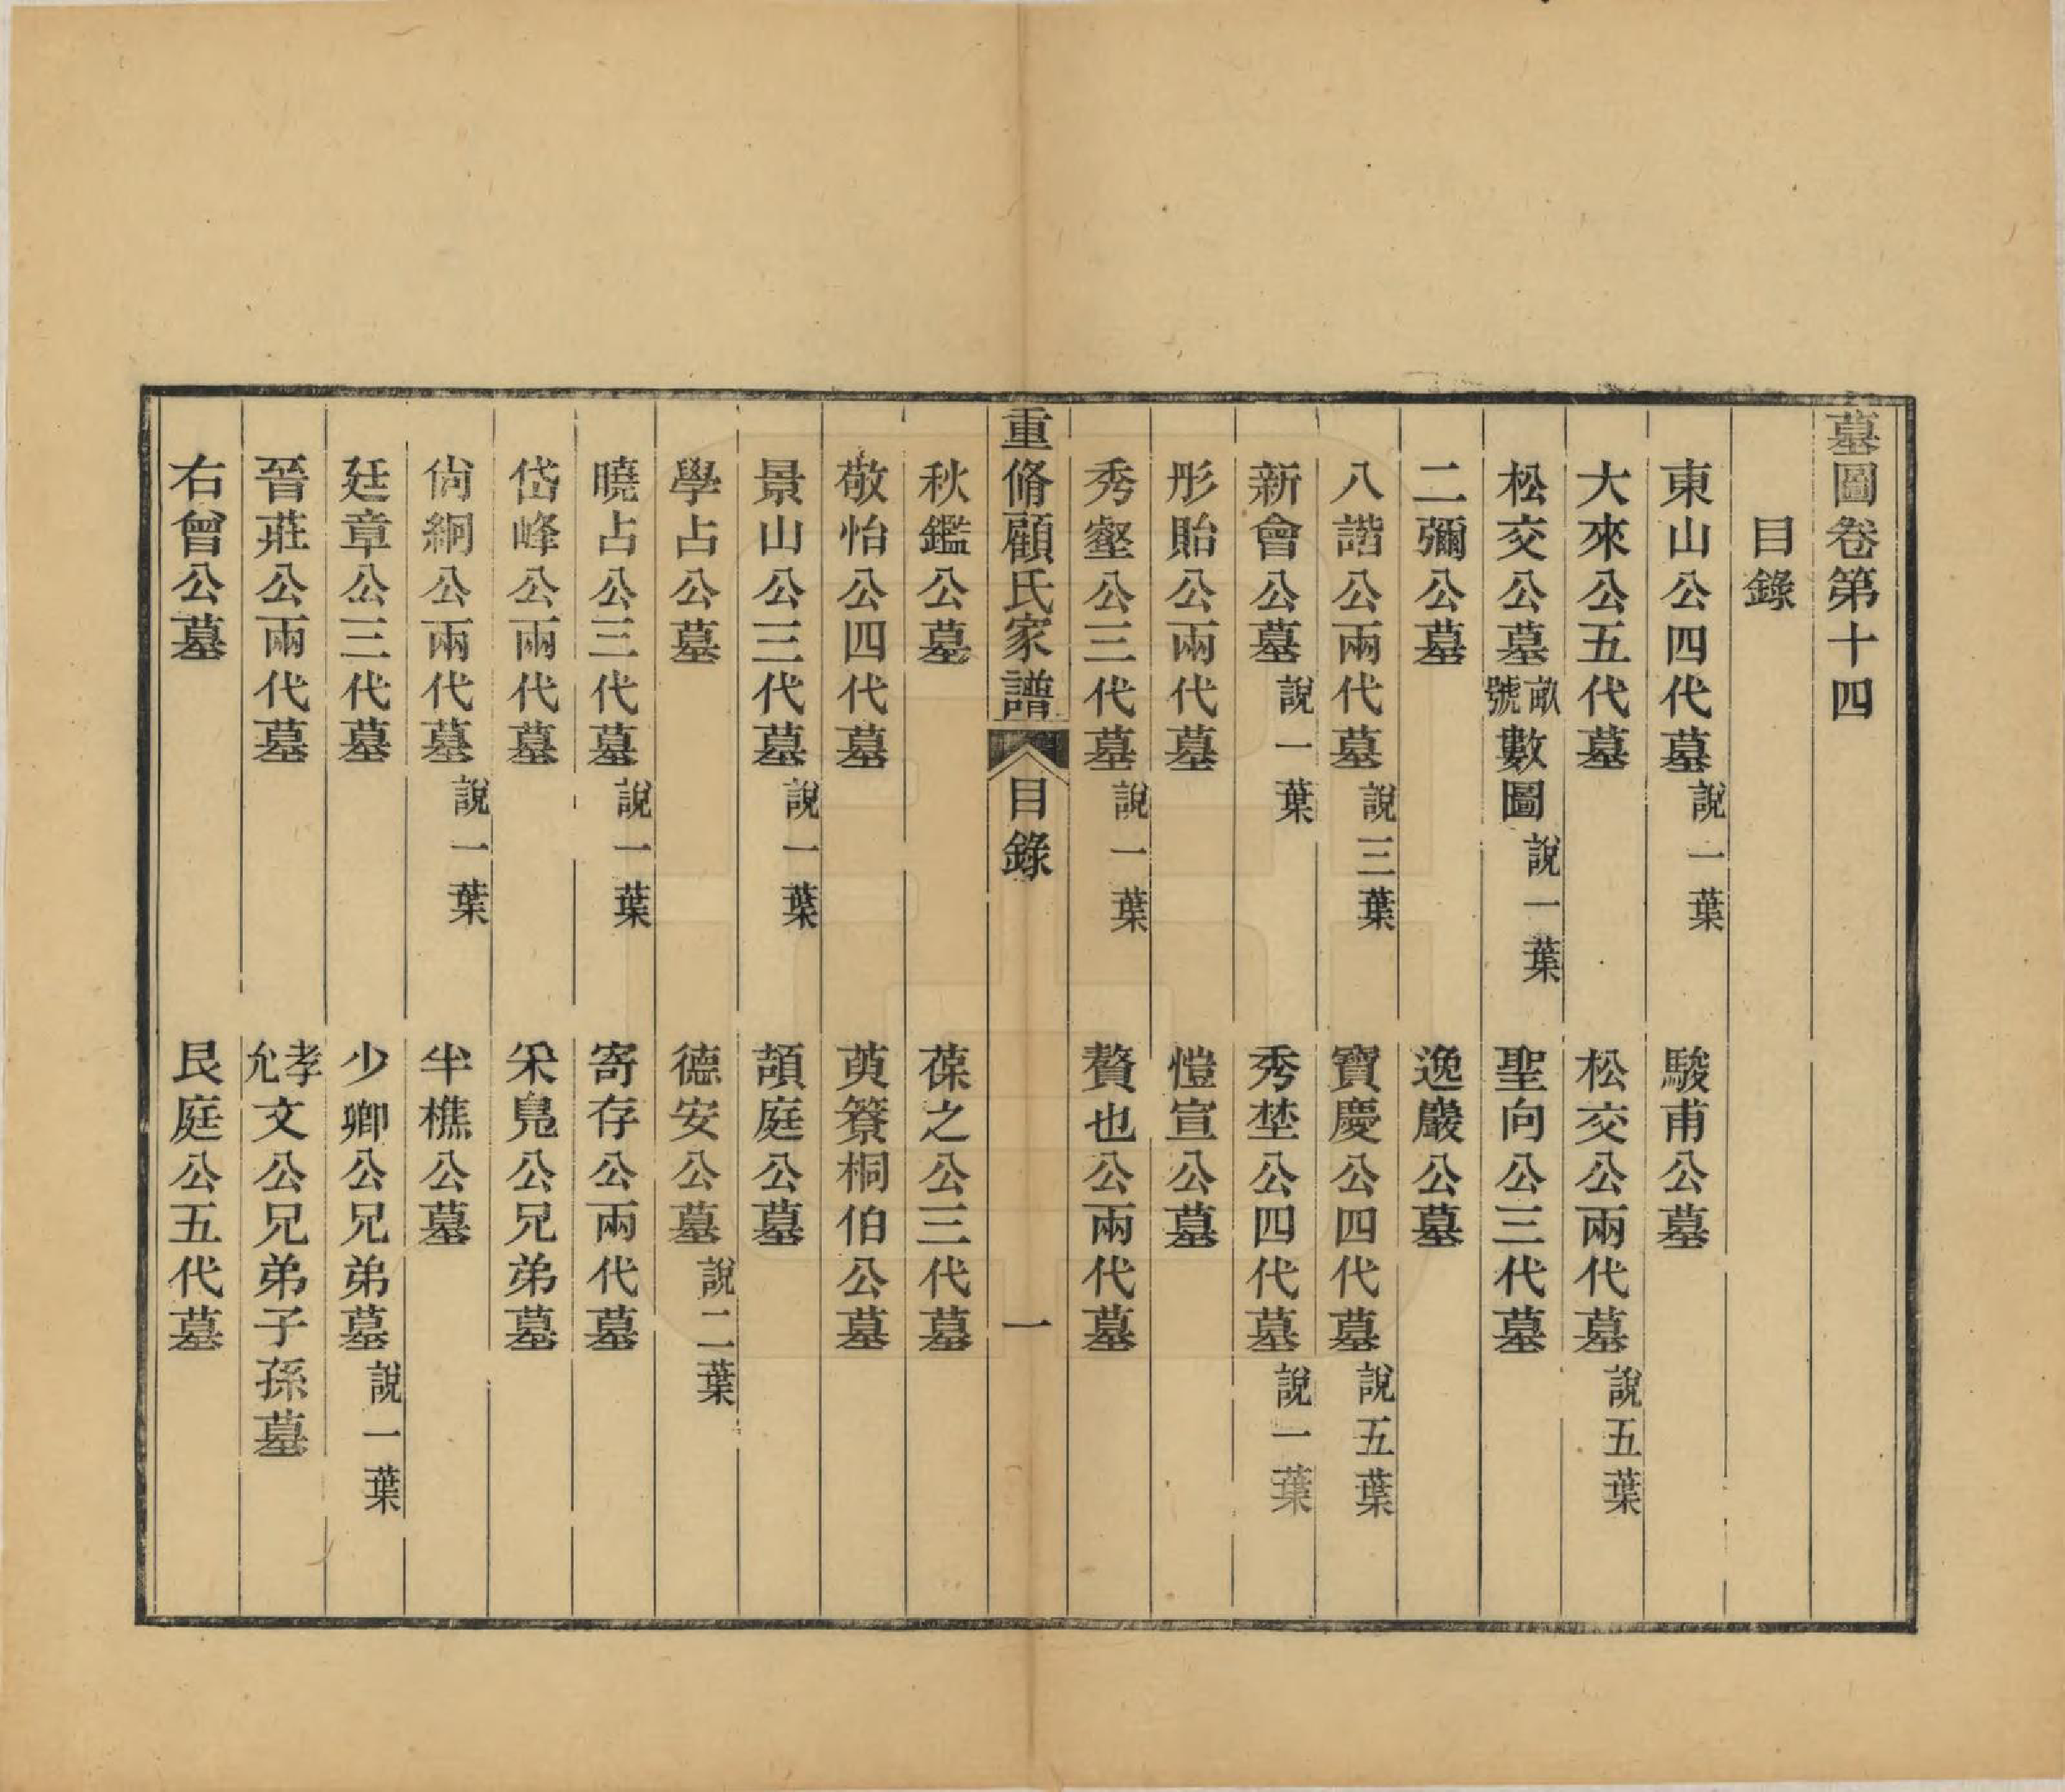 墓圖卷第十四
目錄
東山公四代墓 說一葉 駿甫公墓
大來公五代墓 松交公兩代墓 說五葉
松交公墓畝號數圖 說一葉 聖向公三代墓
二彌公墓 逸巖公墓
八諧公兩代墓 說三葉 寶慶公四代墓 說五葉
新會公墓 說一葉 秀埜公四代墓 說一葉
彤貽公兩代墓 愷宣公墓
秀壑公三代墓 說一葉 贅也公兩代墓
重脩顧氏家譜 目錄 一
秋鑑公墓 葆之公三代墓
敬怡公四代墓 萸簝桐伯公墓
景山公三代墓 說一葉 頡庭公墓
學占公墓 德安公墓 說二葉
曉占公三代墓 說一葉 寄存公兩代墓
岱峰公兩代墓 采鳧公兄弟墓
尙絅公兩代墓 說一葉 半樵公墓
廷章公三代墓 少卿公兄弟墓 說一葉
晉莊公兩代墓 孝允文公兄弟子孫墓
右曾公墓 艮庭公五代墓